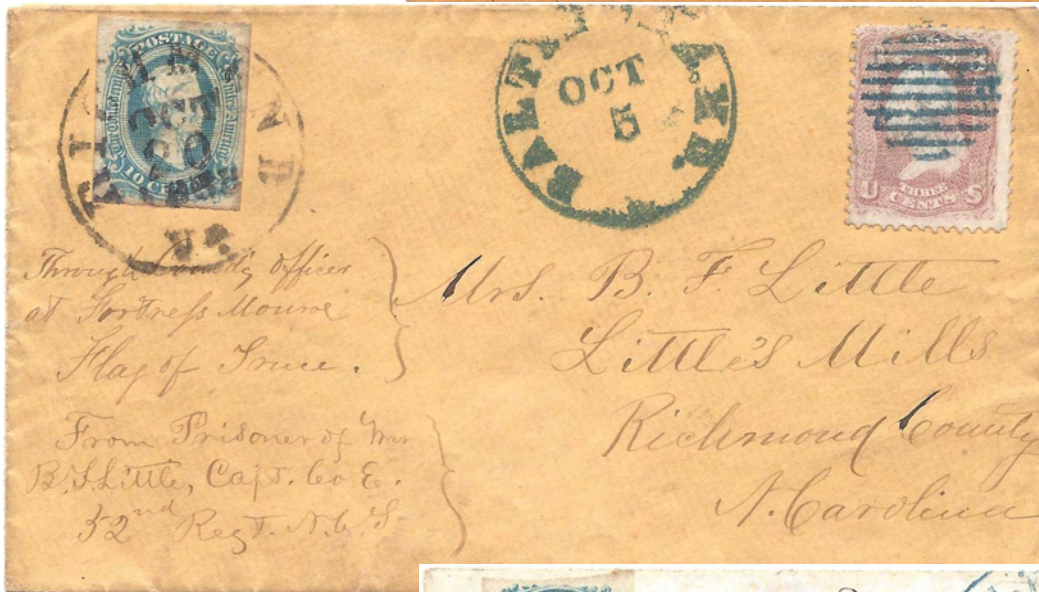 POSTAGE
10 CENTS
RICHMOND
OCT
20
VA.
BALTIMORE MD.
OCT
5
U THREE CENTS S
Through Comd'g Officer
at Fortress Monroe
Flag of Truce.
From Prisoner of War
B. F. Little, Capt. Co E.
52nd Regt. N.C.S.
Mrs. B. F. Little
Little's Mills
Richmond County
N. Carolina